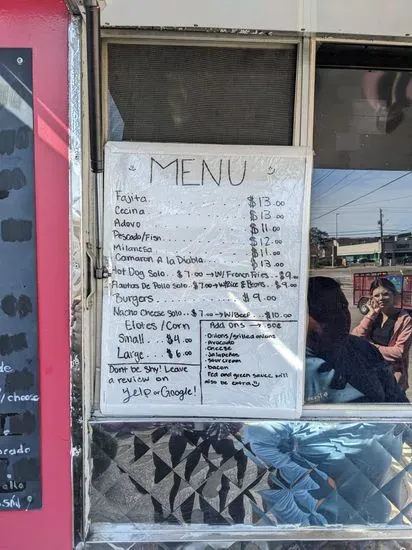 MENU
Fajita ........ $13.00
Cecina ........ $13.00
Adovo ........ $11.00
Pescado/Fish ........ $12.00
Milanesa ........ $11.00
Camaron A la Diabla ........ $13.00
Hot Dog Solo.. $7.00 → W/ French Fries.. $9.00
Flautas De Pollo Solo.. $7.00 → W/Rice & Beans.. $9.00
Burgers ........ $9.00
Nacho Cheese Solo.. $7.00 → W/Beef.. $10.00
Elotes/Corn
Small... $4.00
Large... $6.00
Dont be Shy! Leave
a review on
Yelp or Google!
Add Ons → .50¢
• Onions/grilled onions
• Avocado
• Cheese
• Jalapeños
• Sour cream
• bacon
Red and green sauce will
also be extra
de
/cheese